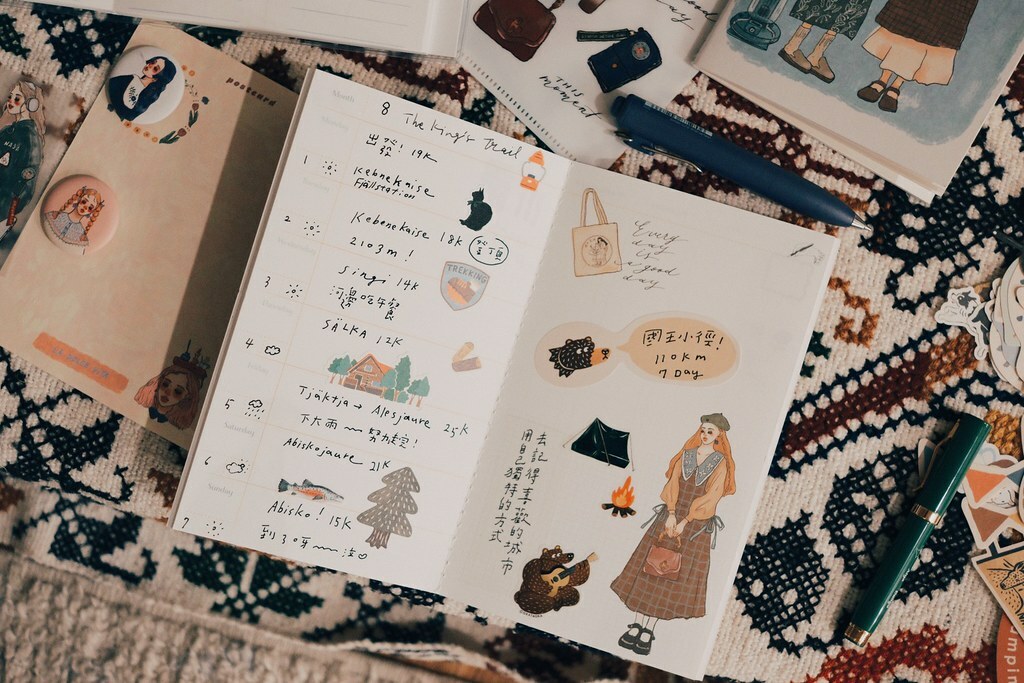 postcard
THIS
moment
Month
8 The King's Trail
Monday
出發! 19K
1 Kebnekaise
Fjällstation
2 Kebenekaise 18K
登頂
2103m!
TREKKING
3 Singi 14K
河邊吃午餐
4 SÄLKA 12K
5 Tjäktja → Alesjaure 25K
下大雨~努力走!
Saturday
6 Abiskojaure 21K
Sunday
7 Abisko! 15K
到了呀~
Every
day
is
a good
day
國王小徑!
110km
7 Day
去記得喜歡的城市
用自己獨特的方式